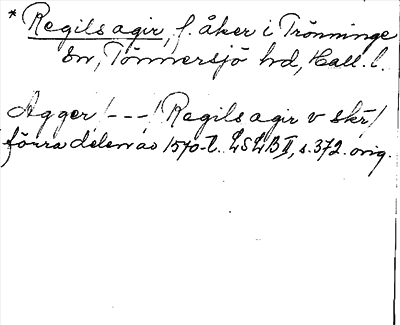 * Regils agir, f. åker i Trönninge
sn, Tönnersjö hd, Hall. l.
Agger / - - - / Regils agir v skr /
förra delen av 1570-t. LSLB II, s. 372. orig.